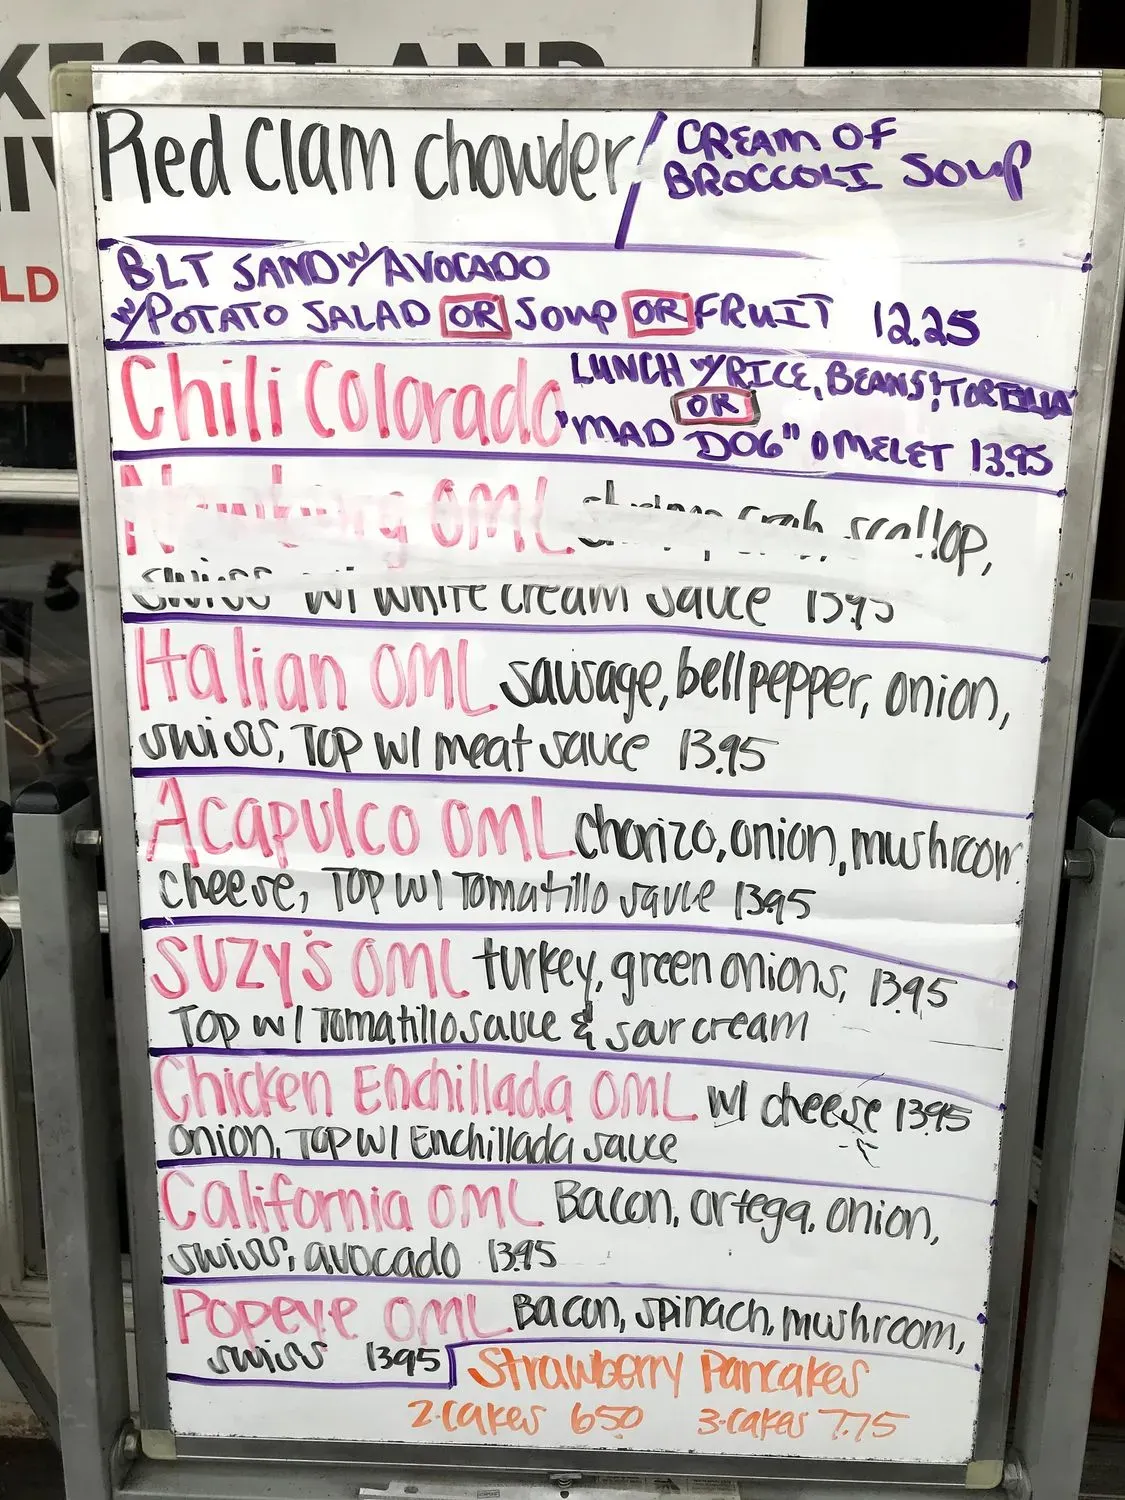 Red Clam Chowder / CREAM OF
BROCCOLI SOUP
BLT SAND W/ AVOCADO
W/ POTATO SALAD OR SOUP OR FRUIT 12.25
Chili Colorado LUNCH W/ RICE, BEANS, TORTILLA
OR
"MAD DOG" OMELET 13.95
Newburg OML shrimp, crab, scallop,
swiss w/ white cream sauce 1395
Italian OML sausage, bell pepper, onion,
swiss, TOP w/ meat sauce 13.95
Acapulco OML chorizo, onion, mushroom
cheese, TOP w/ Tomatillo sauce 1395
SUZY'S OML turkey, green onions, 1395
TOP w/ Tomatillo sauce & sour cream
Chicken Enchillada OML w/ cheese 1395
onion, TOP w/ Enchillada sauce
California OML Bacon, ortega, onion,
swiss, avocado 1395
Popeye OML Bacon, spinach, mushroom,
swiss 1395
Strawberry Pancakes
2-cakes 650 3-cakes 7.75
LD